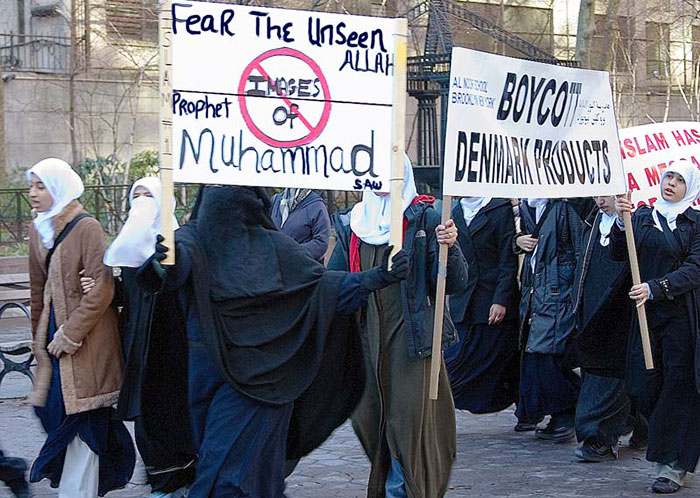 FeaR The UnSeen
ALLAH
IMAGES
OF
Prophet
Muhammad
SAW
AL NOOR SCHOOL
BROOKLYN NEW YORK
BOYCOTT
DENMARK PRODUCTS
ISLAM HAS
A ME